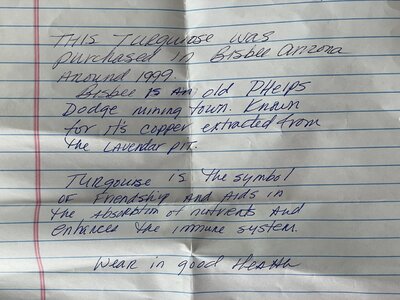 THIS Turquoise was
purchased in Bisbee Arizona
Around 1999.
Bisbee is an old Phelps
Dodge mining town. Known
for it's copper extracted from
the Lavendar pit.
Turqouise is the symbol
of Friendship and Aids in
the absorbtion of nutrients and
enhances the immune system.
Wear in good Health